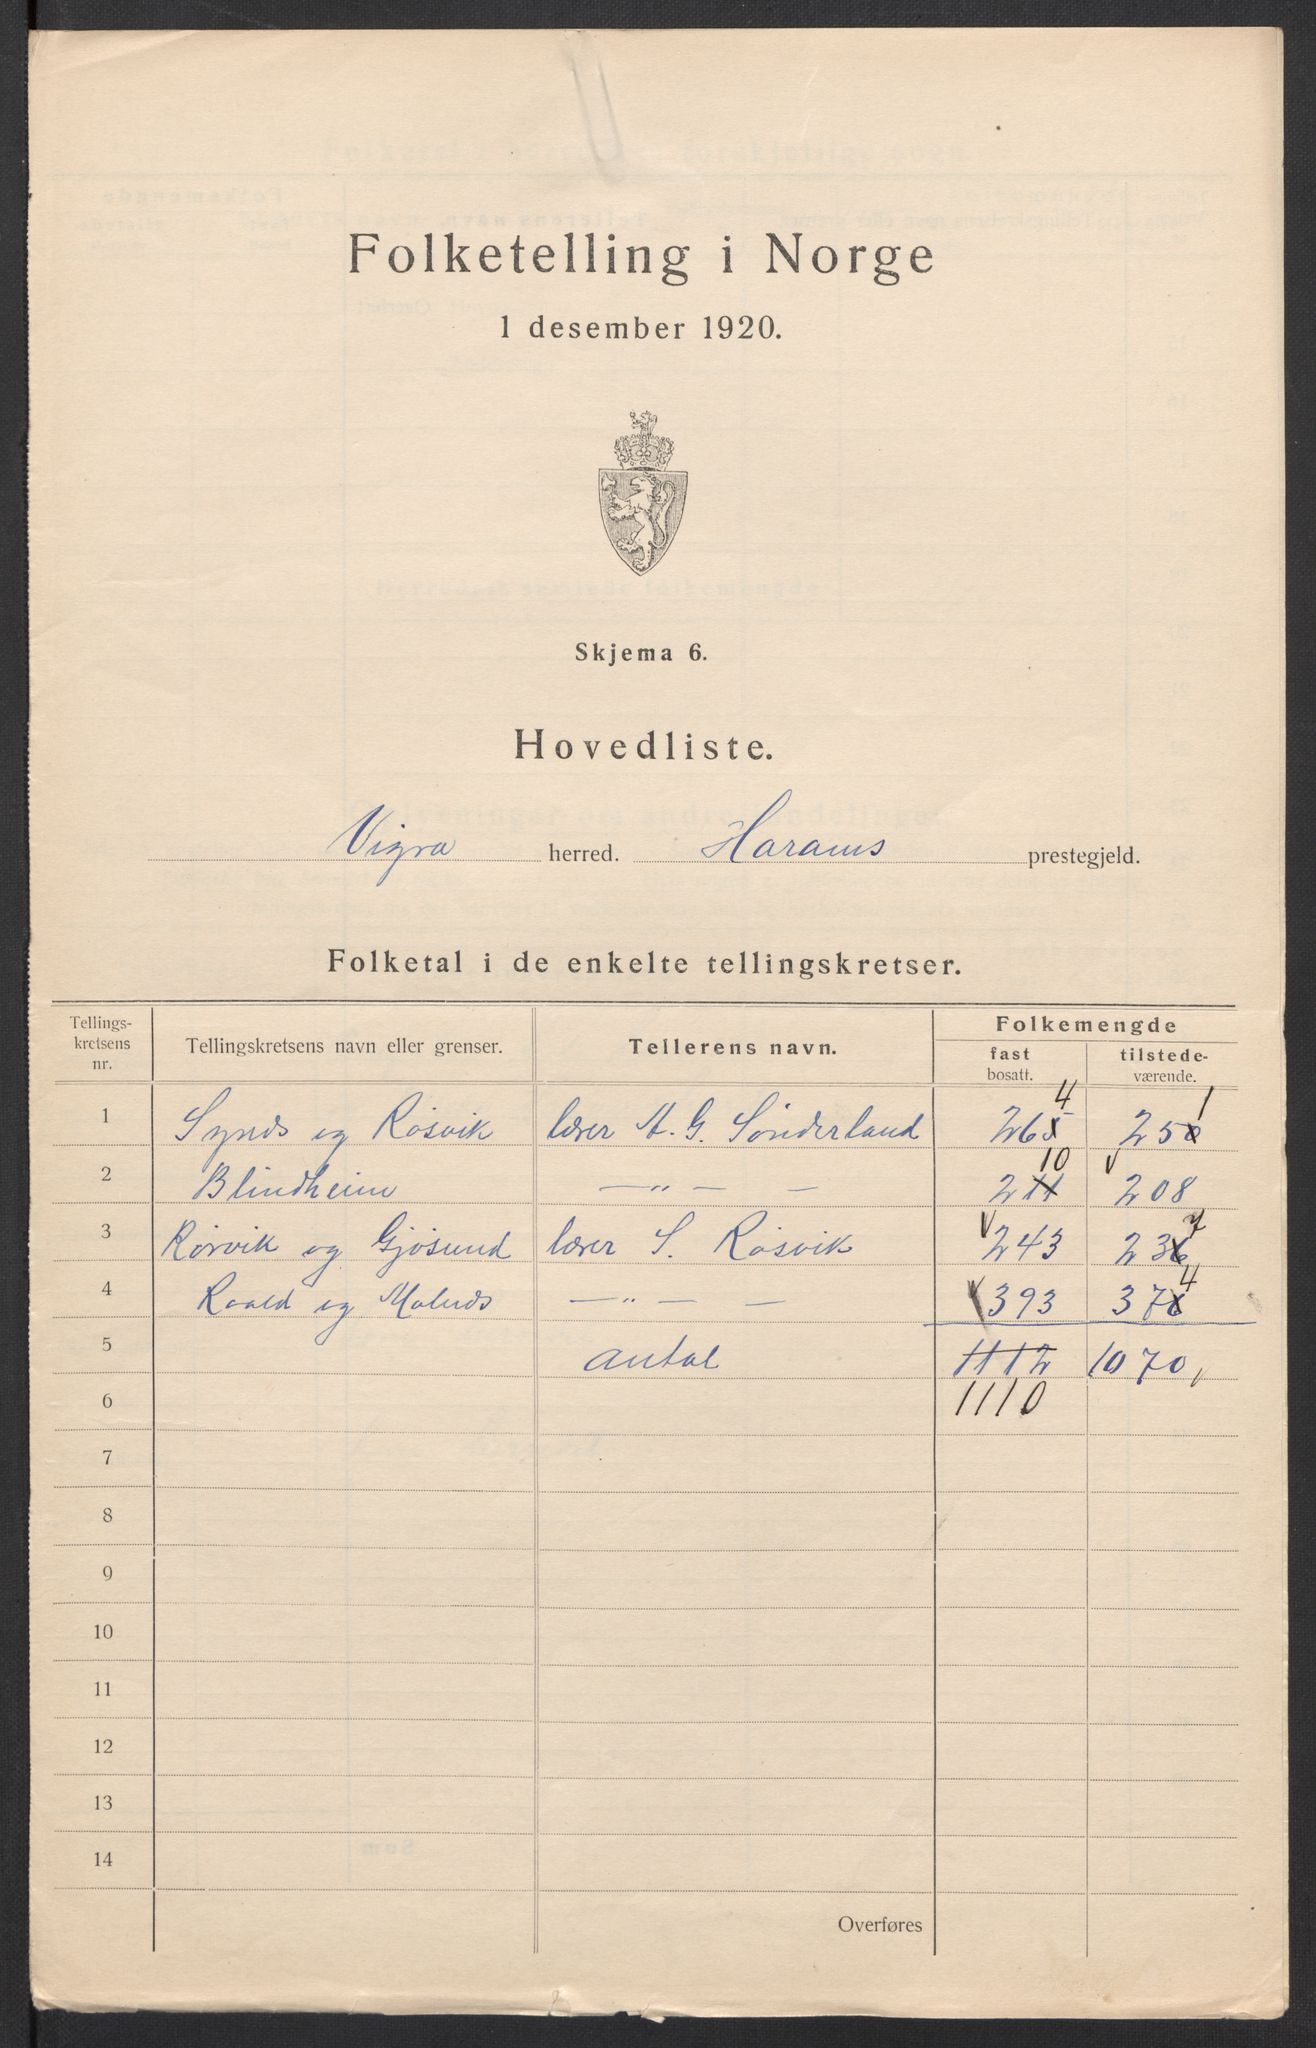 Folketelling i Norge
1 desember 1920.
Skjema 6.
Hovedliste.
Vigra herred. Harams prestegjeld.
Folketal i de enkelte tellingskretser.
Tellings-
kretsens
nr.
Tellingskretsens navn eller grenser.
Tellerens navn.
Folkemengde
fast
bosatt.
tilstede-
værende.
4 1
1 Synes og Røsvik lærer A. G. Sønderland 265 250
10
2 Blindheim —„— — 211 208
7
3 Rørvik og Gjøsund lærer S. Røsvik 243 236
4
4 Roald og Molnes —„— — 393 376
5 Antal 1112 1070
6 1110
7
8
9
10
11
12
13
14
Overføres